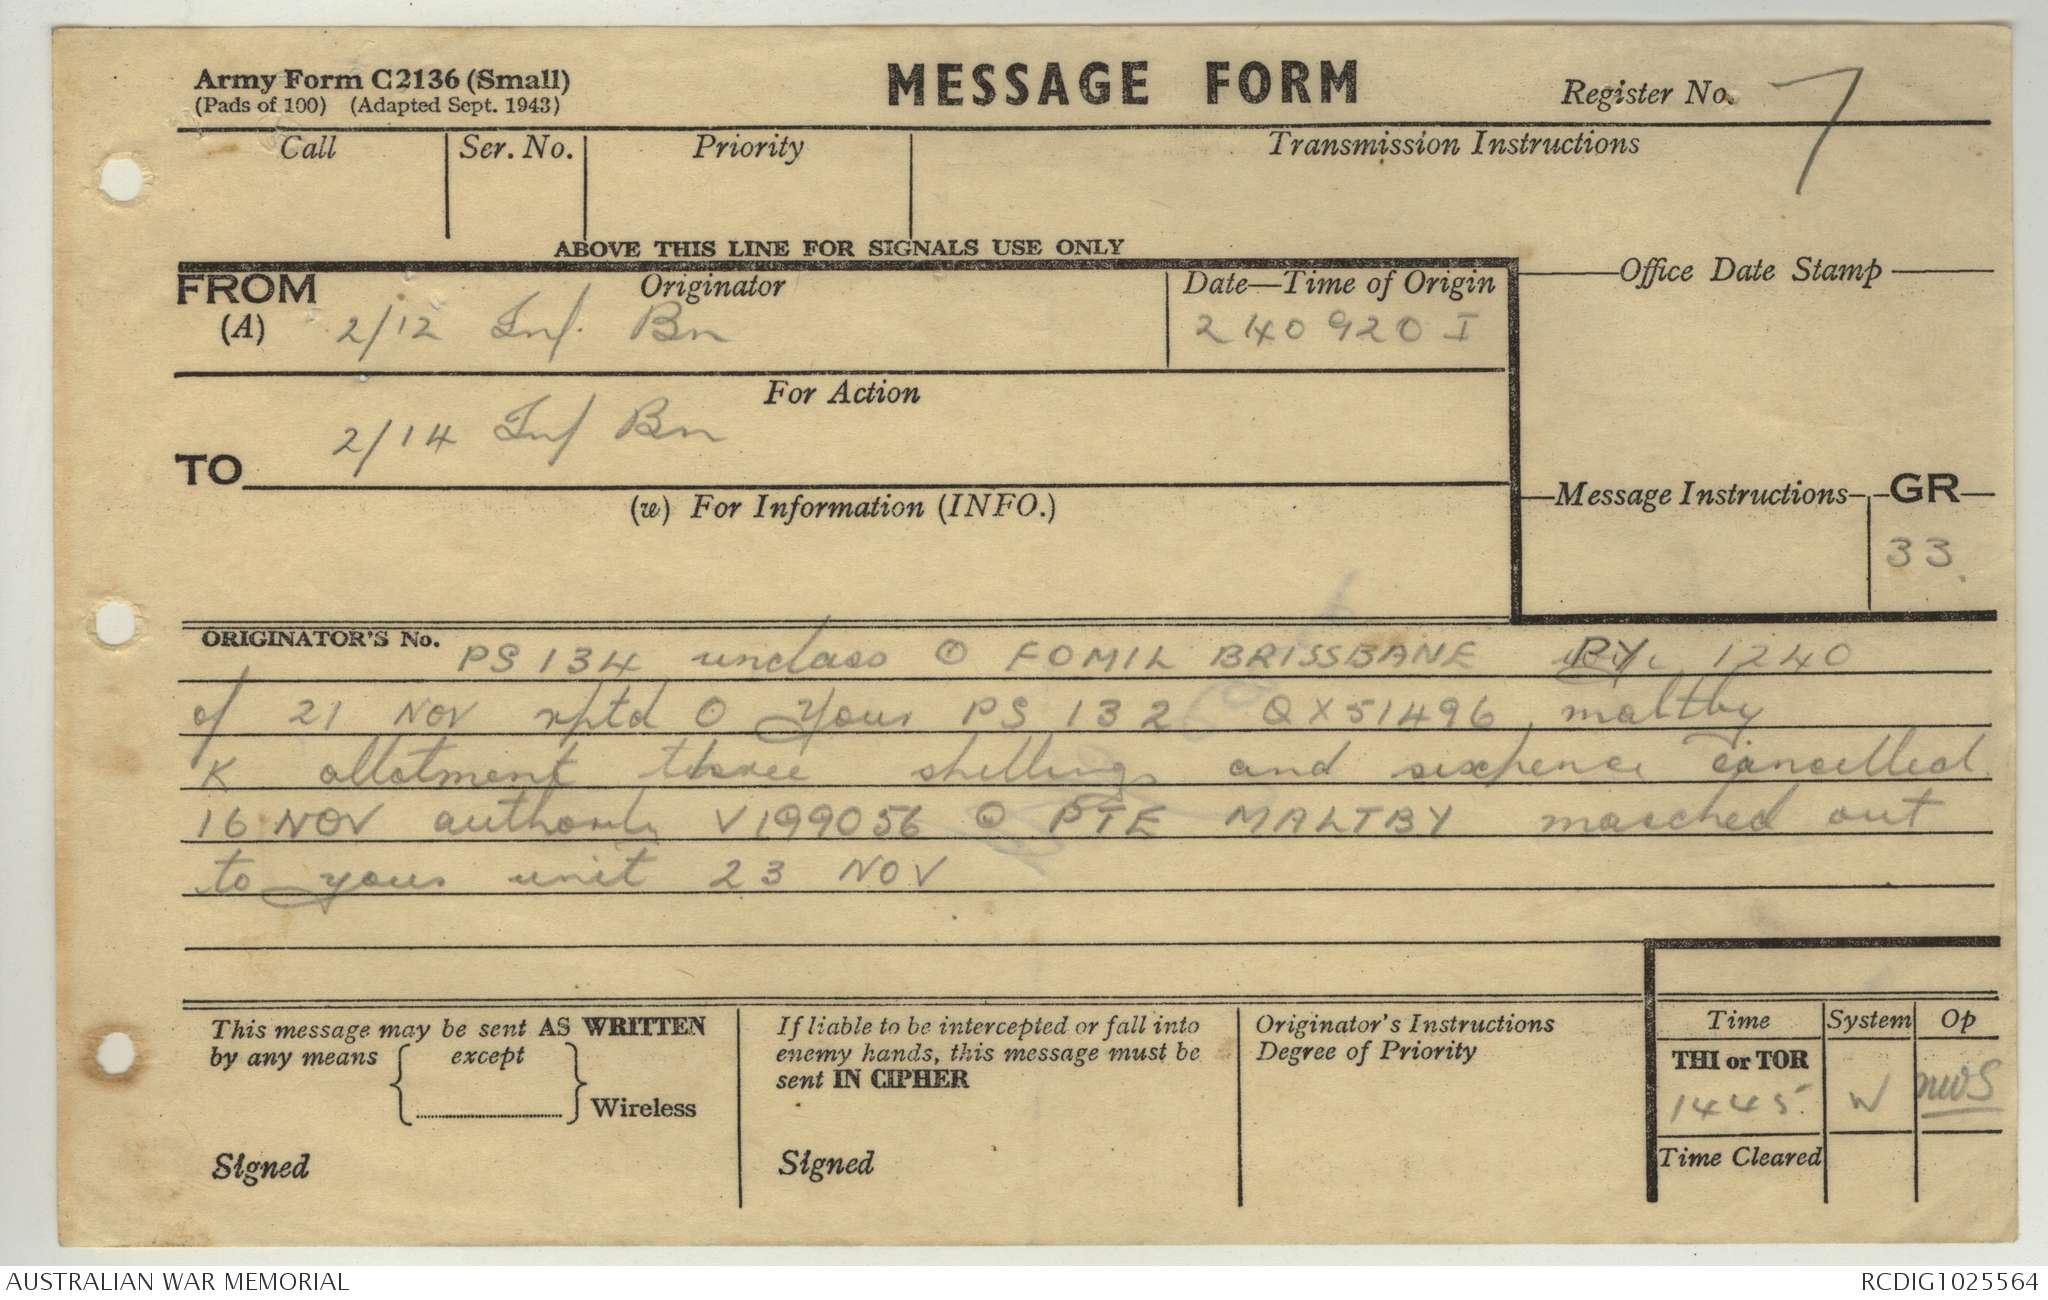 Army Form C2136 (Small)
(Pads of 100) (Adapted Sept. 1943)
MESSAGE FORM
Register No. 7
Call
Ser. No.
Priority
Transmission Instructions
ABOVE THIS LINE FOR SIGNALS USE ONLY
FROM
(A)
Originator
2/12 Inf. Bn
Date—Time of Origin
240920 I
Office Date Stamp
For Action
2/14 Inf Bn
TO
(w) For Information (INFO.)
Message Instructions
GR
33
ORIGINATOR'S No. PS 134 unclass O FOMIL BRISSBANE RY 1240
of 21 NOV rptd O Your PS 132 QX51496 maltby
K allotment three shillings and sixpence cancelled
16 NOV authority V199056 O PTE MALTBY marched out
to your unit 23 NOV
This message may be sent AS WRITTEN
by any means except
Wireless
Signed
If liable to be intercepted or fall into
enemy hands, this message must be
sent IN CIPHER
Signed
Originator's Instructions
Degree of Priority
Time
System
Op
THI or TOR
1445
W
nwS
Time Cleared
AUSTRALIAN WAR MEMORIAL
RCDIG1025564